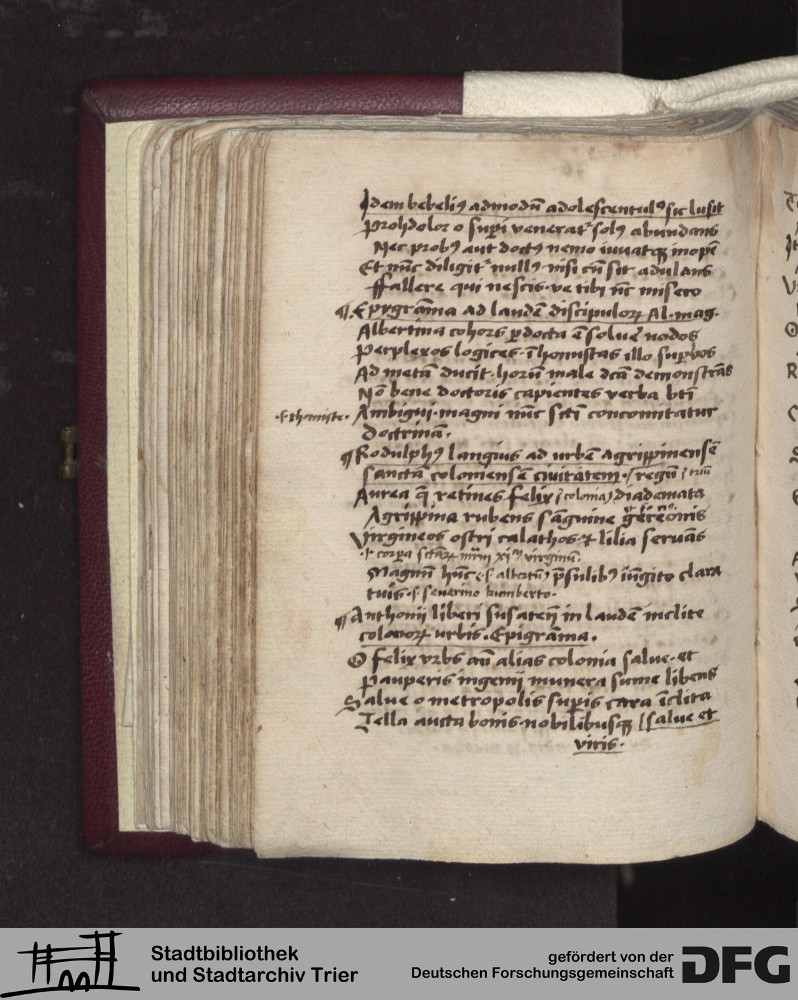 Idem bebeli9 admodū adolescentul9 sic lusit
Prohdolor o supi venerat᷑ sol9 abundans
Nec prob9 aut doct9 nemo iuuatqꝫ inopē
Et nūc diligit᷑ null9 nisi cū sit adulans
Ffallere qui nescis ve tibi nc̄ misero
¶ Epygrāma ad laudē discipuloꝝ Al. mag.
Albertina cohors ꝑdocta ē soluē nodos
Perplexos logices illo supbos
Ad metā ducit horū male dcā demonstrās
Nō bene doctoris capientes verba bt̄i
.s. thomiste. Ambigui magni nūc sct̄i concomitatur
doctrinā.
¶ Rodulph9 langius ad vrbē agrippinensē
sanctā coloniensē civitatem. regū
Aurea q̄ retines felix (colonia) diademata
Agrippina rubens sāguine gereonis
Virgineos ostri calathos & lilia seruās
xi virginū.
Magnū hūc .s. albertū psulibꝫ iūgito clara
tuis .s. seuerino kumberto.
¶ Anthonij liberi susaten̄ in laudē inclite
colonoꝝ vrbis. Epigrāma.
O felix vrbs an̄ alias colonia salue et
Pauperis ingenij munera sume libens
Salue o metropolis supis cara īclita
Tella aucta bonis nobilibusqꝫ salue et
viris.
Stadtbibliothek
und Stadtarchiv Trier
gefördert von der
Deutschen Forschungsgemeinschaft
DFG